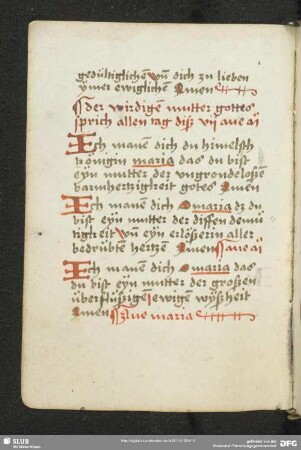 gedültiglichen vn̄ dich zu lieben
ymer ewiglichen Amen
der wirdigen mutter gottes
sprich allen tag diß vij aue
Ich manen dich du himelsch
königin maria das du bist
eyn mutter der vngrondeloßen
barmhertzigheit gotes Amen
Ich manen dich O maria dz du
bist eyn mutter der diffen demü
tigkeit vn̄ eyn erlößerin aller
bedrübten hertzen Amen aue
Ich manen dich O maria das
du bist eyn mutter der großen
überflüßigen ewigen wyßheit
Amen Aue maria
SLUB
Wir führen Wissen.
gefördert von der
Deutschen Forschungsgemeinschaft
DFG